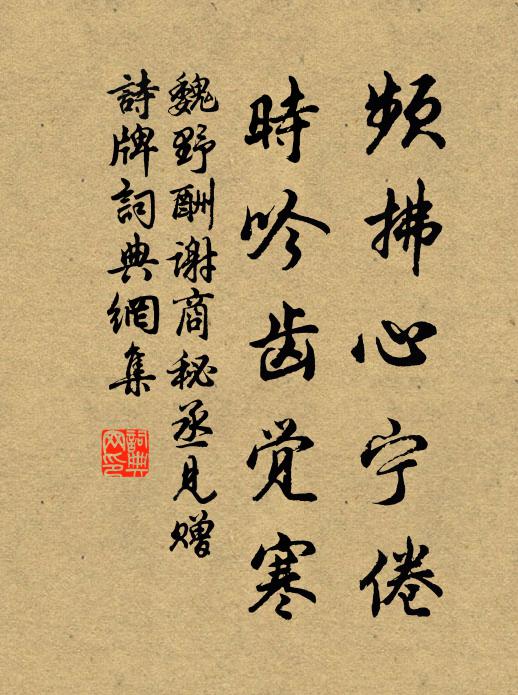 频拂心宁倦
时吟齿觉寒
魏野酬谢商秘丞見赠
詩牌詞典網集
詞典网印